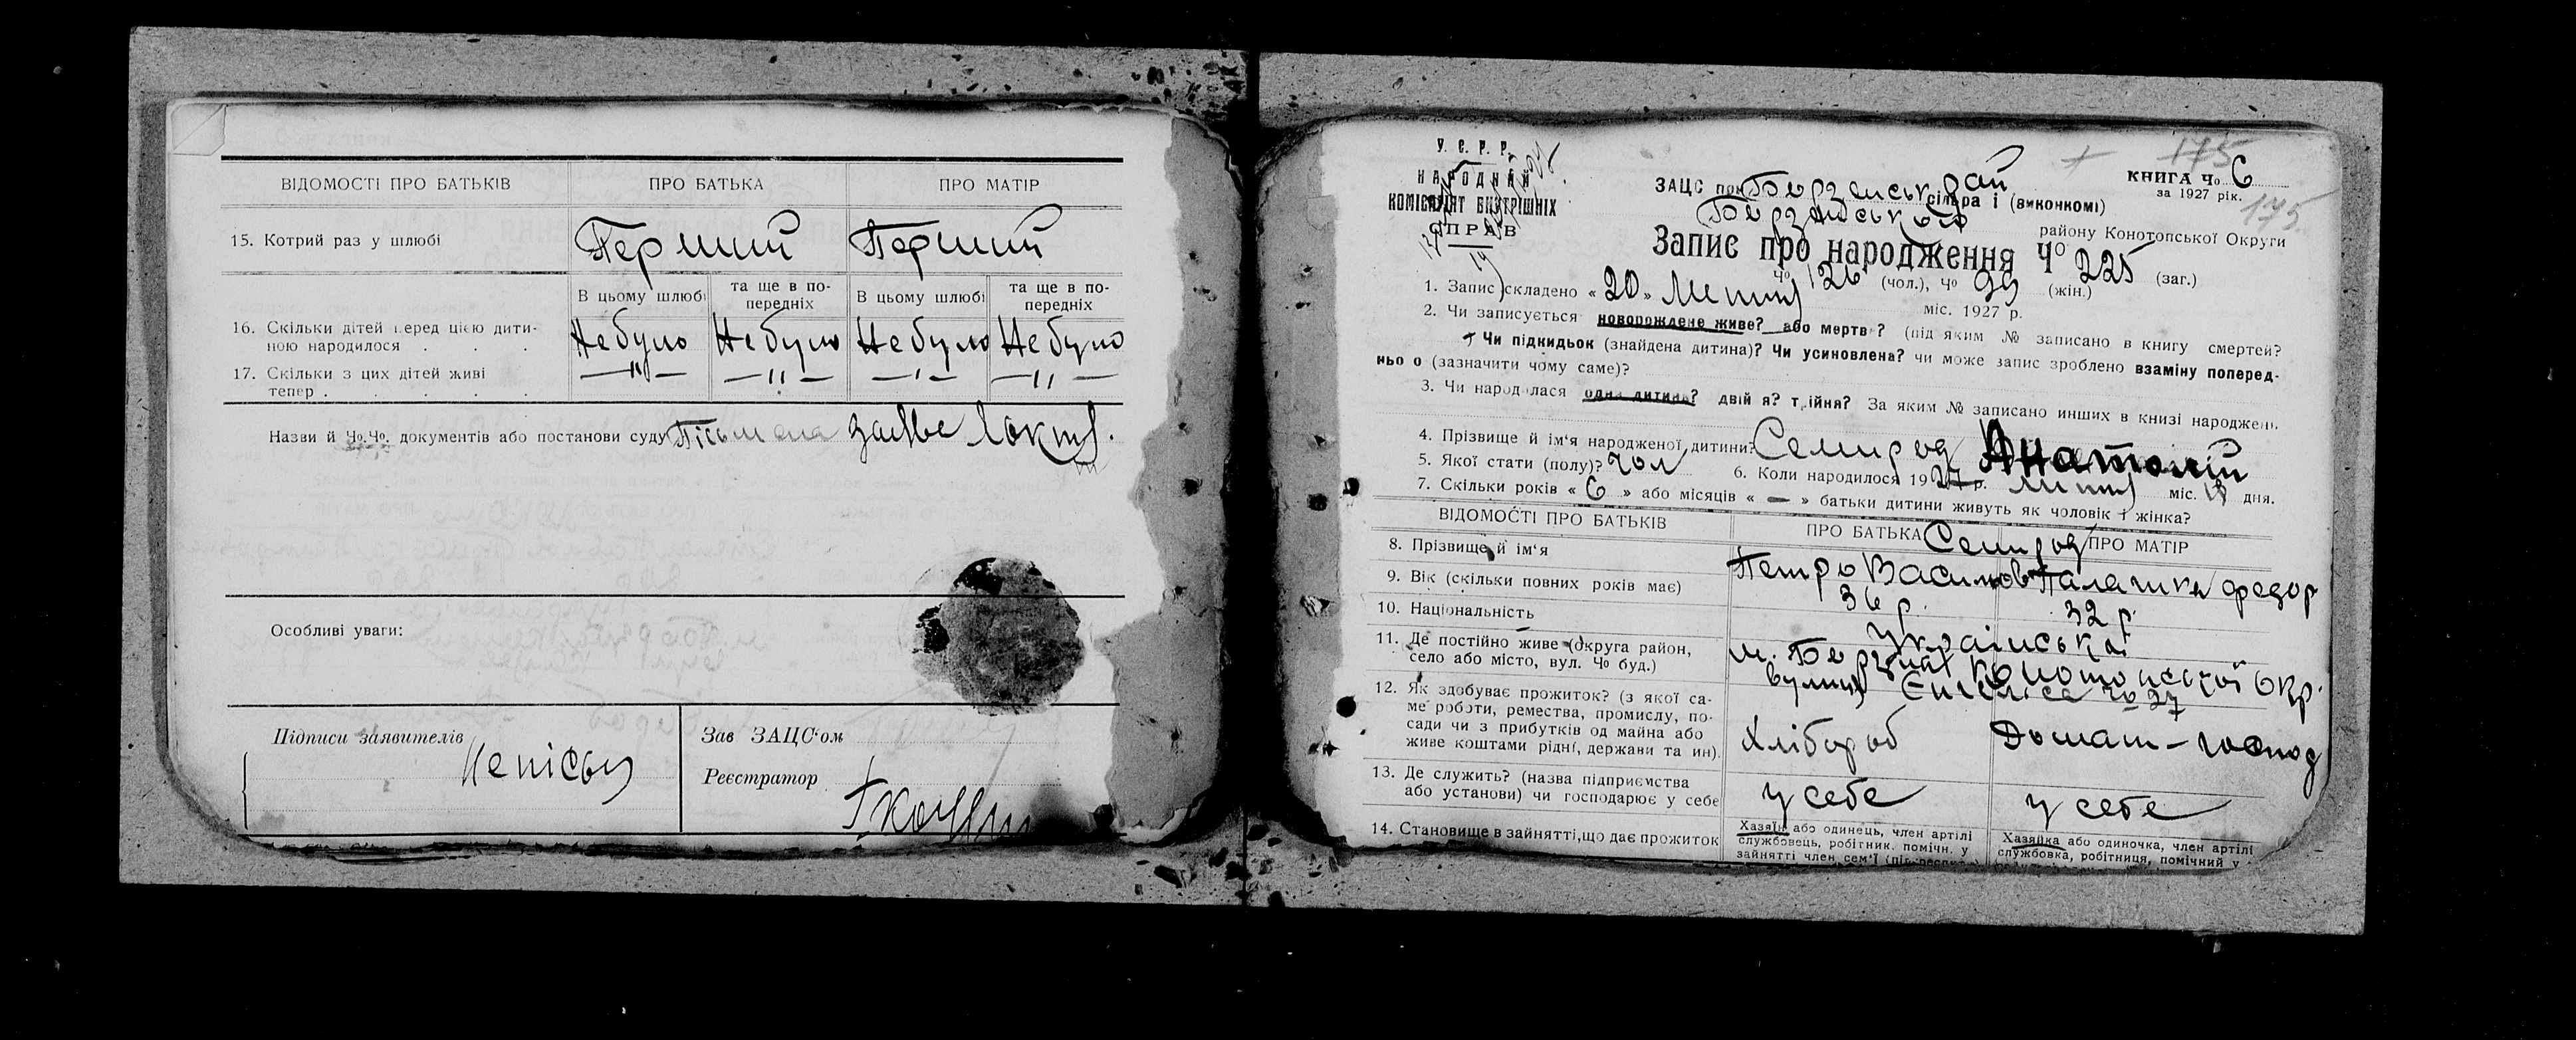 ВІДОМОСТІ ПРО БАТЬКІВ ПРО БАТЬКА ПРО МАТІР
15. Котрий раз у шлюбі Перший Перший
В цьому шлюбі та ще в попередніх В цьому шлюбі та ще в попередніх
16. Скільки дітей перед цією дити-
ною народилося . . . Небуло Небуло Небуло Небуло
17. Скільки з цих дітей живі
тепер . . . . . . —"— —"— —"— —"—
Назви й Чо.Чо. документів або постанови суду Пісьмена заява
Особливі уваги:
Підписи заявителів Зав ЗАЦС'ом
Реєстратор
У. С. Р. Р.
НАРОДНІЙ
КОМІСАРІЯТ ВНУТРІШНІХ
СПРАВ
175
КНИГА Чо 6
за 1927 рік.
175
ЗАЦС при Борзенськ рай сільра і (виконкомі)
Борзенського району Конотопської Округи
Запис про народження Чо 225 (заг.)
Чо 126 (чол.), Чо 99 (жін.)
1. Запис складено « 20 » Липня міс. 1927 р.
2. Чи записується новорождене живе? або мертве? (під яким № записано в книгу смертей?
Чи підкидьок (знайдена дитина)? Чи усиновлена? чи може запис зроблено взаміну поперед-
ньо о (зазначити чому саме)?
3. Чи народилася одна дитина? двійня? трійня? За яким № записано инших в книзі народжень
4. Прізвище й ім'я народженої дитини? Семирод Анатолій
5. Якої стати (полу)? чол 6. Коли народилося 1927 р. Липня міс. дня.
7. Скільки років « 6 » або місяців « — » батьки дитини живуть як чоловік і жінка?
ВІДОМОСТІ ПРО БАТЬКІВ ПРО БАТЬКА ПРО МАТІР
Семирод
8. Прізвище й ім'я Петро Васильов Палашка Федор
9. Вік (скільки повних років має) 36 р. 32 р.
10. Національність Українська
11. Де постійно живе (округа район,
село або місто, вул. Чо буд.) м. Борзна Конотопської Окр.
вулиця Енгельса Чо 27
12. Як здобуває прожиток? (з якої са-
ме роботи, ремества, промислу, по-
сади чи з прибутків од майна або
живе коштами рідні, держави та ин). Хлібороб Домаш-господ
13. Де служить? (назва підприємства
або установи) чи господарює у себе у себе у себе
14. Становище в зайнятті,що дає прожиток
Хазяїн або одинець, член артілі
службовець, робітник. помічн. у
зайнятті член сем'ї
Хазяйка або одиночка, член артілі
службовка, робітниця, помічний у